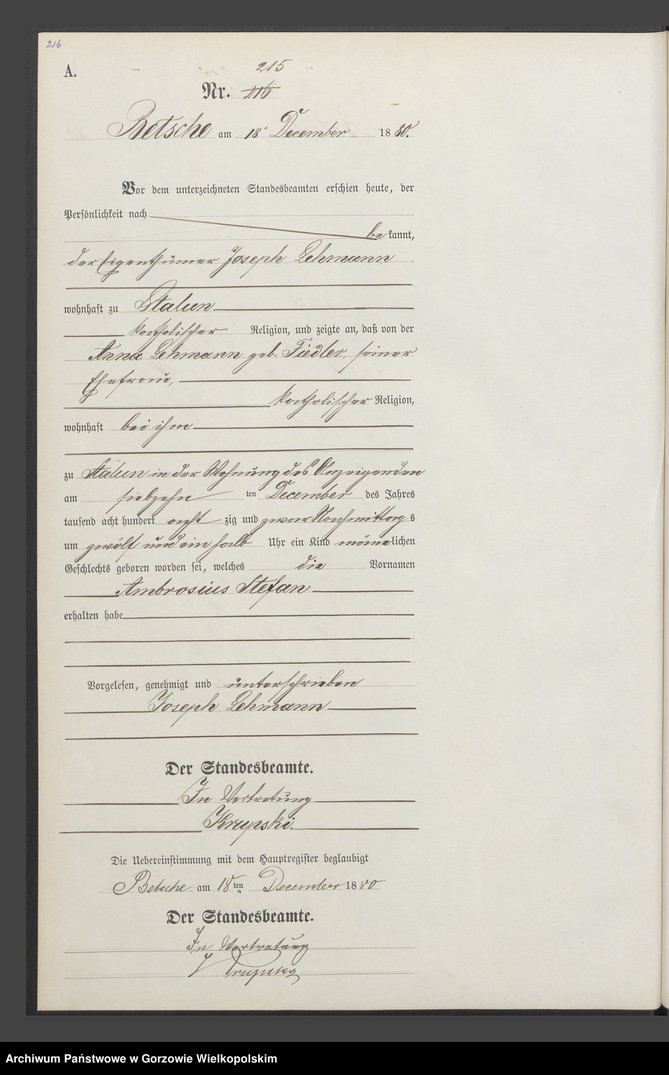 216
A.
215
Nr. 216
Betsche am 18 December 1880.
Vor dem unterzeichneten Standesbeamten erschien heute, der
Persönlichkeit nach
bekannt,
der Eigenthümer Joseph Lehmann
wohnhaft zu Stalun
katholischer Religion, und zeigte an, daß von der
Anna Lehmann geb. Fiedler, seiner
Ehefrau,
katholischer Religion,
wohnhaft bei ihm
zu Stalun in der Wohnung des Anzeigenden
am siebzehn ten December des Jahres
tausend acht hundert acht zig und zwar Nachmittags
um zwölf und ein halb Uhr ein Kind männlichen
Geschlechts geboren worden sei, welches die Vornamen
Ambrosius Stefan
erhalten habe
Vorgelesen, genehmigt und unterschrieben
Joseph Lehmann
Der Standesbeamte.
In Vertretung
Krupski.
Die Uebereinstimmung mit dem Hauptregister beglaubigt
Betsche am 18ten December 1880
Der Standesbeamte.
In Vertretung
Archiwum Państwowe w Gorzowie Wielkopolskim